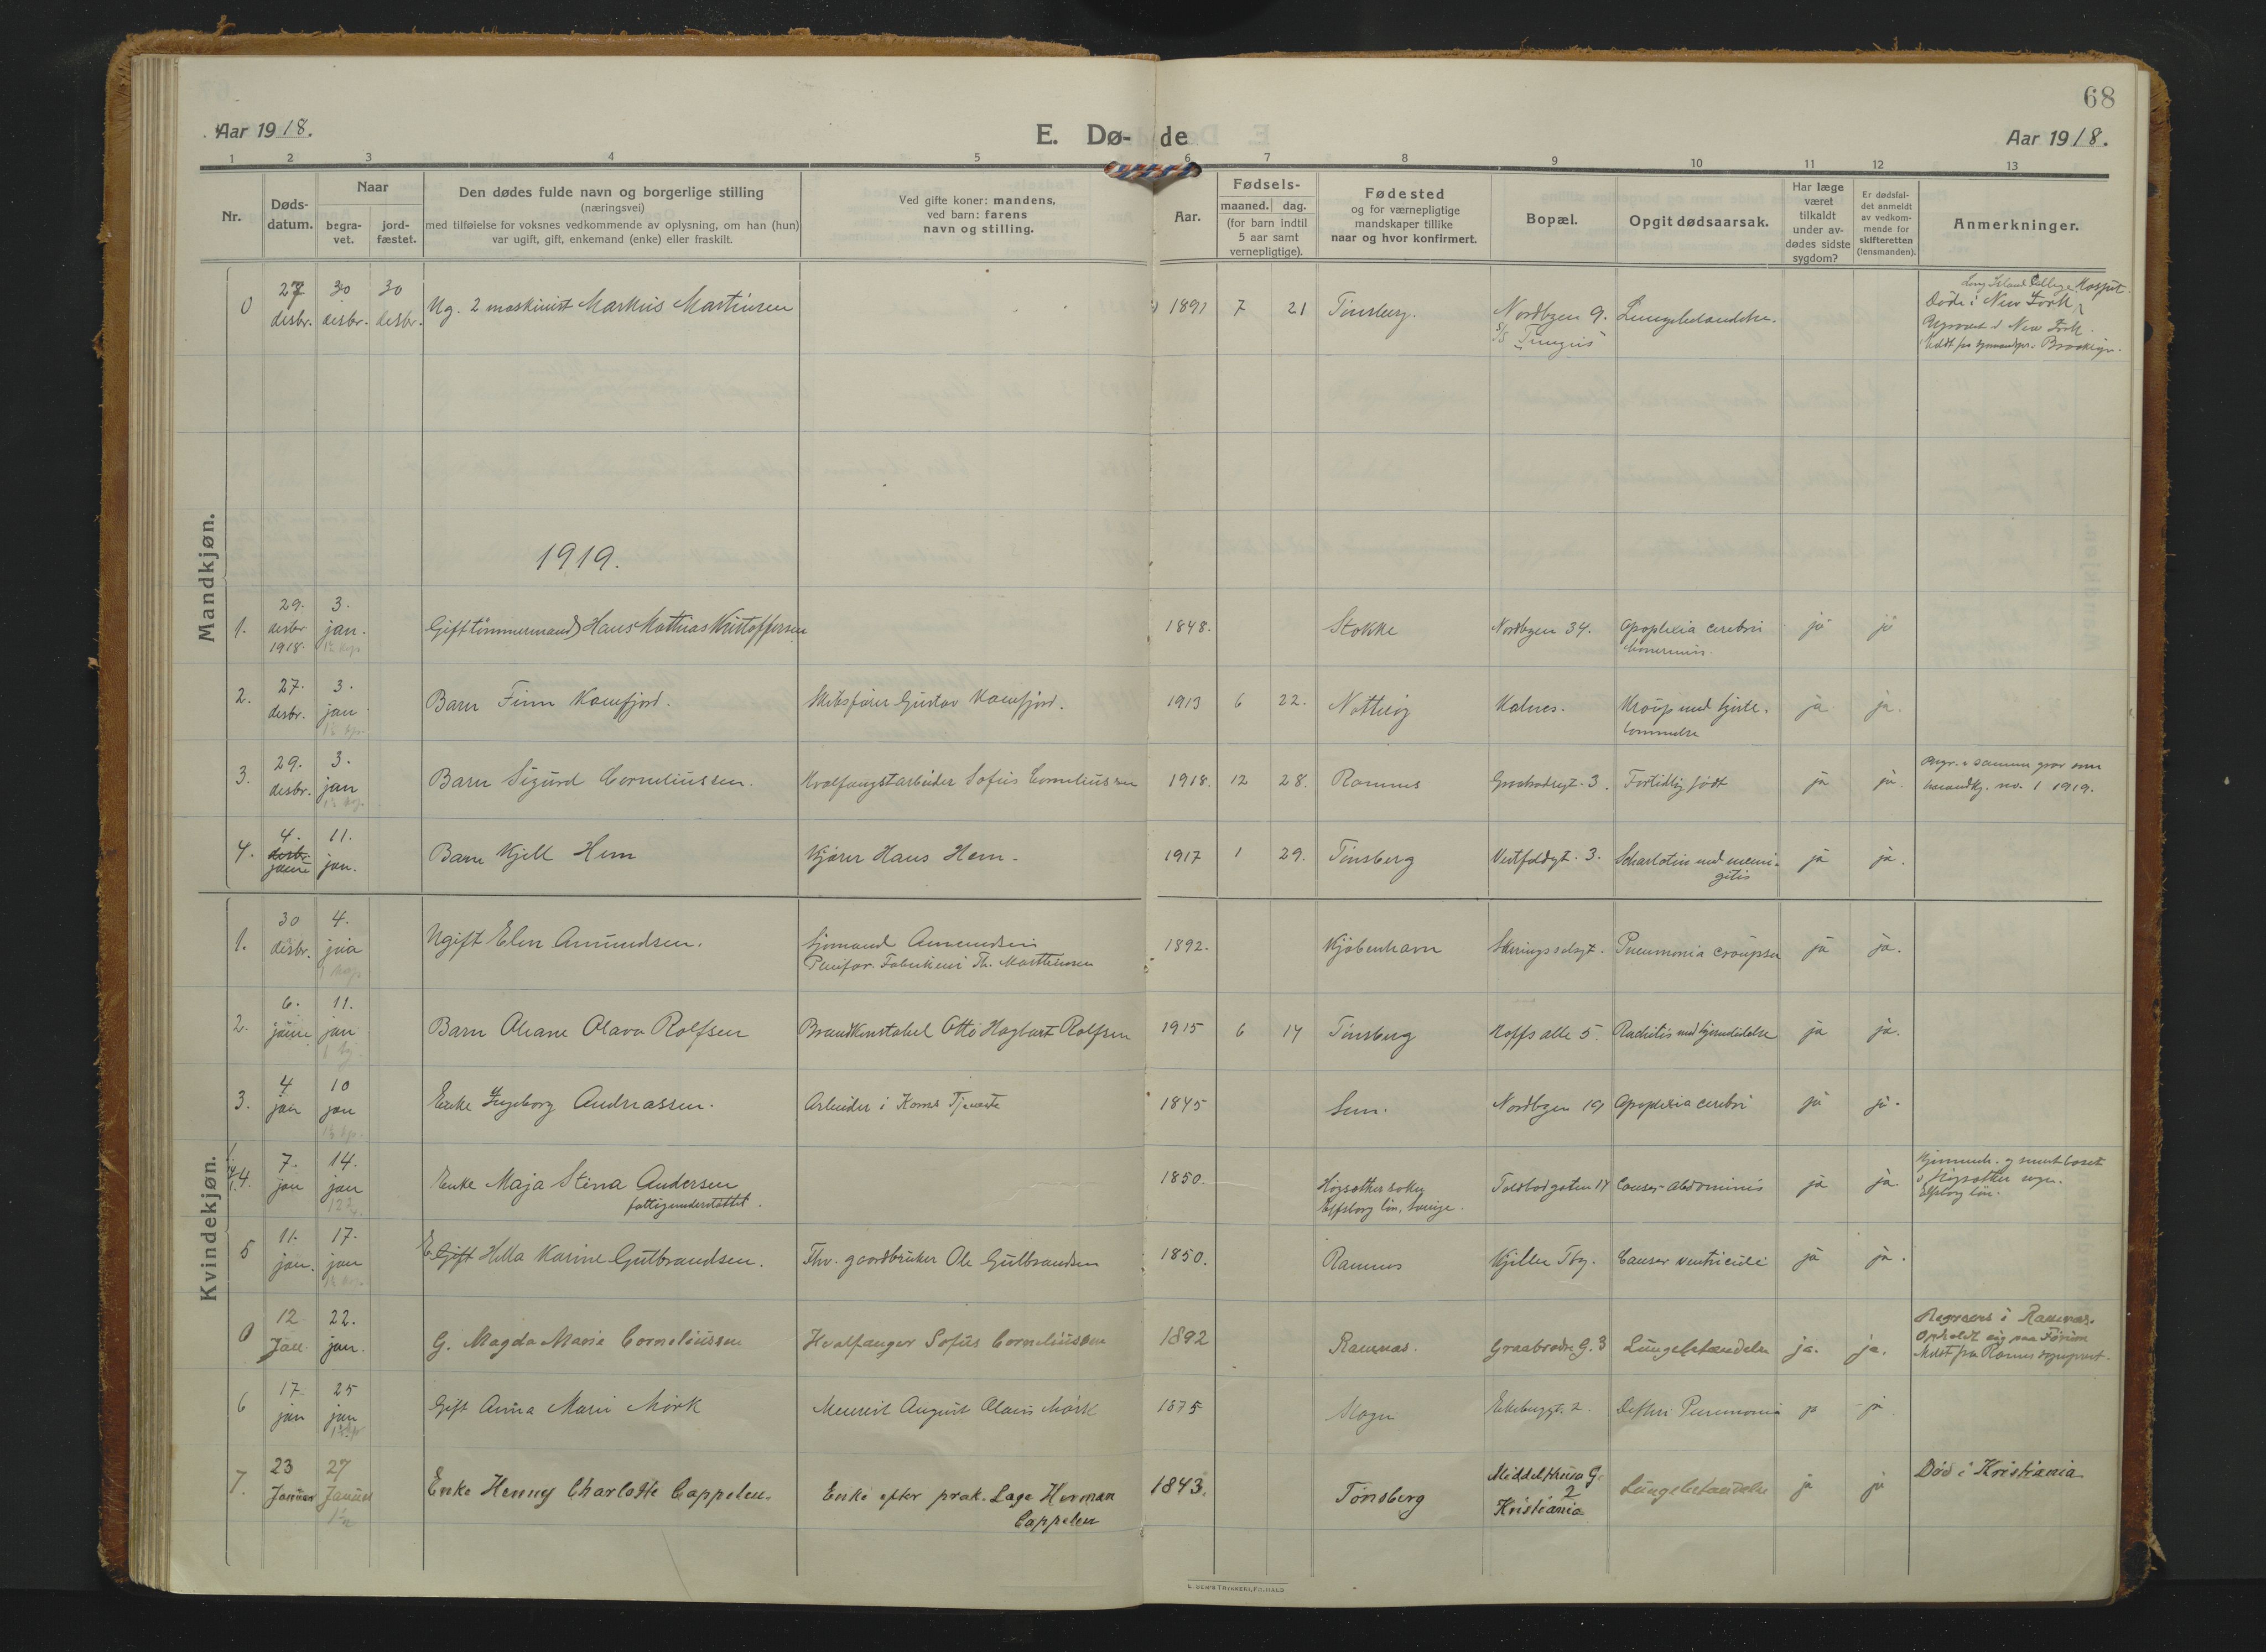 68
Aar 1918.
E. Dø- de
Aar 1918.
1 2 3 4 5 6 7 8 9 10 11 12 13
Nr.
Døds-
datum.
Naar
begra-
vet.
jord-
fæstet.
Den dødes fulde navn og borgerlige stilling
(næringsvei)
med tilføielse for voksnes vedkommende av oplysning, om han (hun)
var ugift, gift, enkemand (enke) eller fraskilt.
Ved gifte koner: mandens,
ved barn: farens
navn og stilling.
Aar.
Fødsels-
maaned. dag.
(for barn indtil
5 aar samt
vernepligtige).
Fødested
og for værnepligtige
mandskaper tillike
naar og hvor konfirmert.
Bopæl.
Opgit dødsaarsak.
Har læge
været
tilkaldt
under av-
dødes sidste
sygdom?
Er dødsfal-
det anmeldt
av vedkom-
mende for
skifteretten
(lensmanden).
Anmerkninger.
Mandkjøn.
0 27 desbr. 30 desbr. 30 desbr. Ug. 2 maskinist Markus Martinsen 1891 7 21 Tønsberg. Nordbyen 9. Lungebetændelse.
S/S
Long Island College Hosspit.
Døde i New York
New York.
1919.
1. 29. desbr 1918. 3. jan. Gift tømmermand Hans Mathias Kristoffersen 1848. Stokke Nordbyen 34. Apoplexia cerebri ja ja
2. 27. desbr. 3. jan. Barn Finn Kamfjord. Skibsfører Gustav Kamfjord. 1913 6 22. Nøtterø Kalnes. Kroup med hjerte- ja ja.
lammelse
3. 29. desbr. 3. jan Barn Sigurd Corneliussen. Hvalfangstarbeider Sofus Corneliussen 1918. 12 28. Ramnes Graabrødregt. 3. Fortidlig født ja ja.
Begr. i samme grav som
mandkj. no. 1 1919.
4. 4. desbr. januar 11. jan. Barn Kjell Hem Kjører Haus Hem. 1917 1 29. Tønsberg Vestfoldgt. 3. Scharlatin med menin- ja ja.
gitis
Kvindekjøn.
1. 30 desbr. 4. jan Ugift Elen Amundsen. Sjømand Amundsen 1892. Kjøbenhavn Pneumonia croupsa ja ja.
Pleiefar. Th. Marthinsen
2. 6. januar 11. jan Barn Aliane Olava Rolfsen Brandkonstabel Otto Hagbart Rolfsen 1915 6 14 Tønsberg Hoffs alle 5. Rachitis med ja ja.
3. 4 jan 10 jan Enke Ingeborg Andreassen. Arbeider i Koms Tjeneste 1845 Sem. Nordbyen 19 Apoplexia cerebri ja ja.
4. 7. jan 14. jan Enke Maja Stina Andersen 1850. Högsäter sokn Toldbodgaten 17 Cancer abdominis ja ja.
fattigunderstøttet. Elfsborg län, Sverige.
Elfsborg län.
5 11. jan. 17. jan E Gift Hella Karine Gulbrandsen. Fhv. gaardbruker Ole Gulbrandsen 1850. Ramnes Kjellen Tbg. Cancer ventriculi ja ja.
0 12 Jan. 22. jan. G. Magda Marie Corneliussen Hvalfanger Sofus Corneliussen 1892 Ramnas. Graabrødre G. 3 Lungebetændelse ja. ja.
Begraves i Ramnas.
Opholdt sig paa
Meldt fra Ramnes sogneprest.
6 17 jan 25 jan Gift Anna Marie Mørk August Olaus Mørk 1875 Slagn Eikebergsgt. 2. Pneumonia ja ja.
7. 23 Januar 27 Januar Enke Henny Charlotte Cappelen. Enke efter prak. Lage Herman 1843. Tønsberg Middelthuns G. Lungebetændelse ja ja Død i Kristiania
Cappelen
2
Kristiania